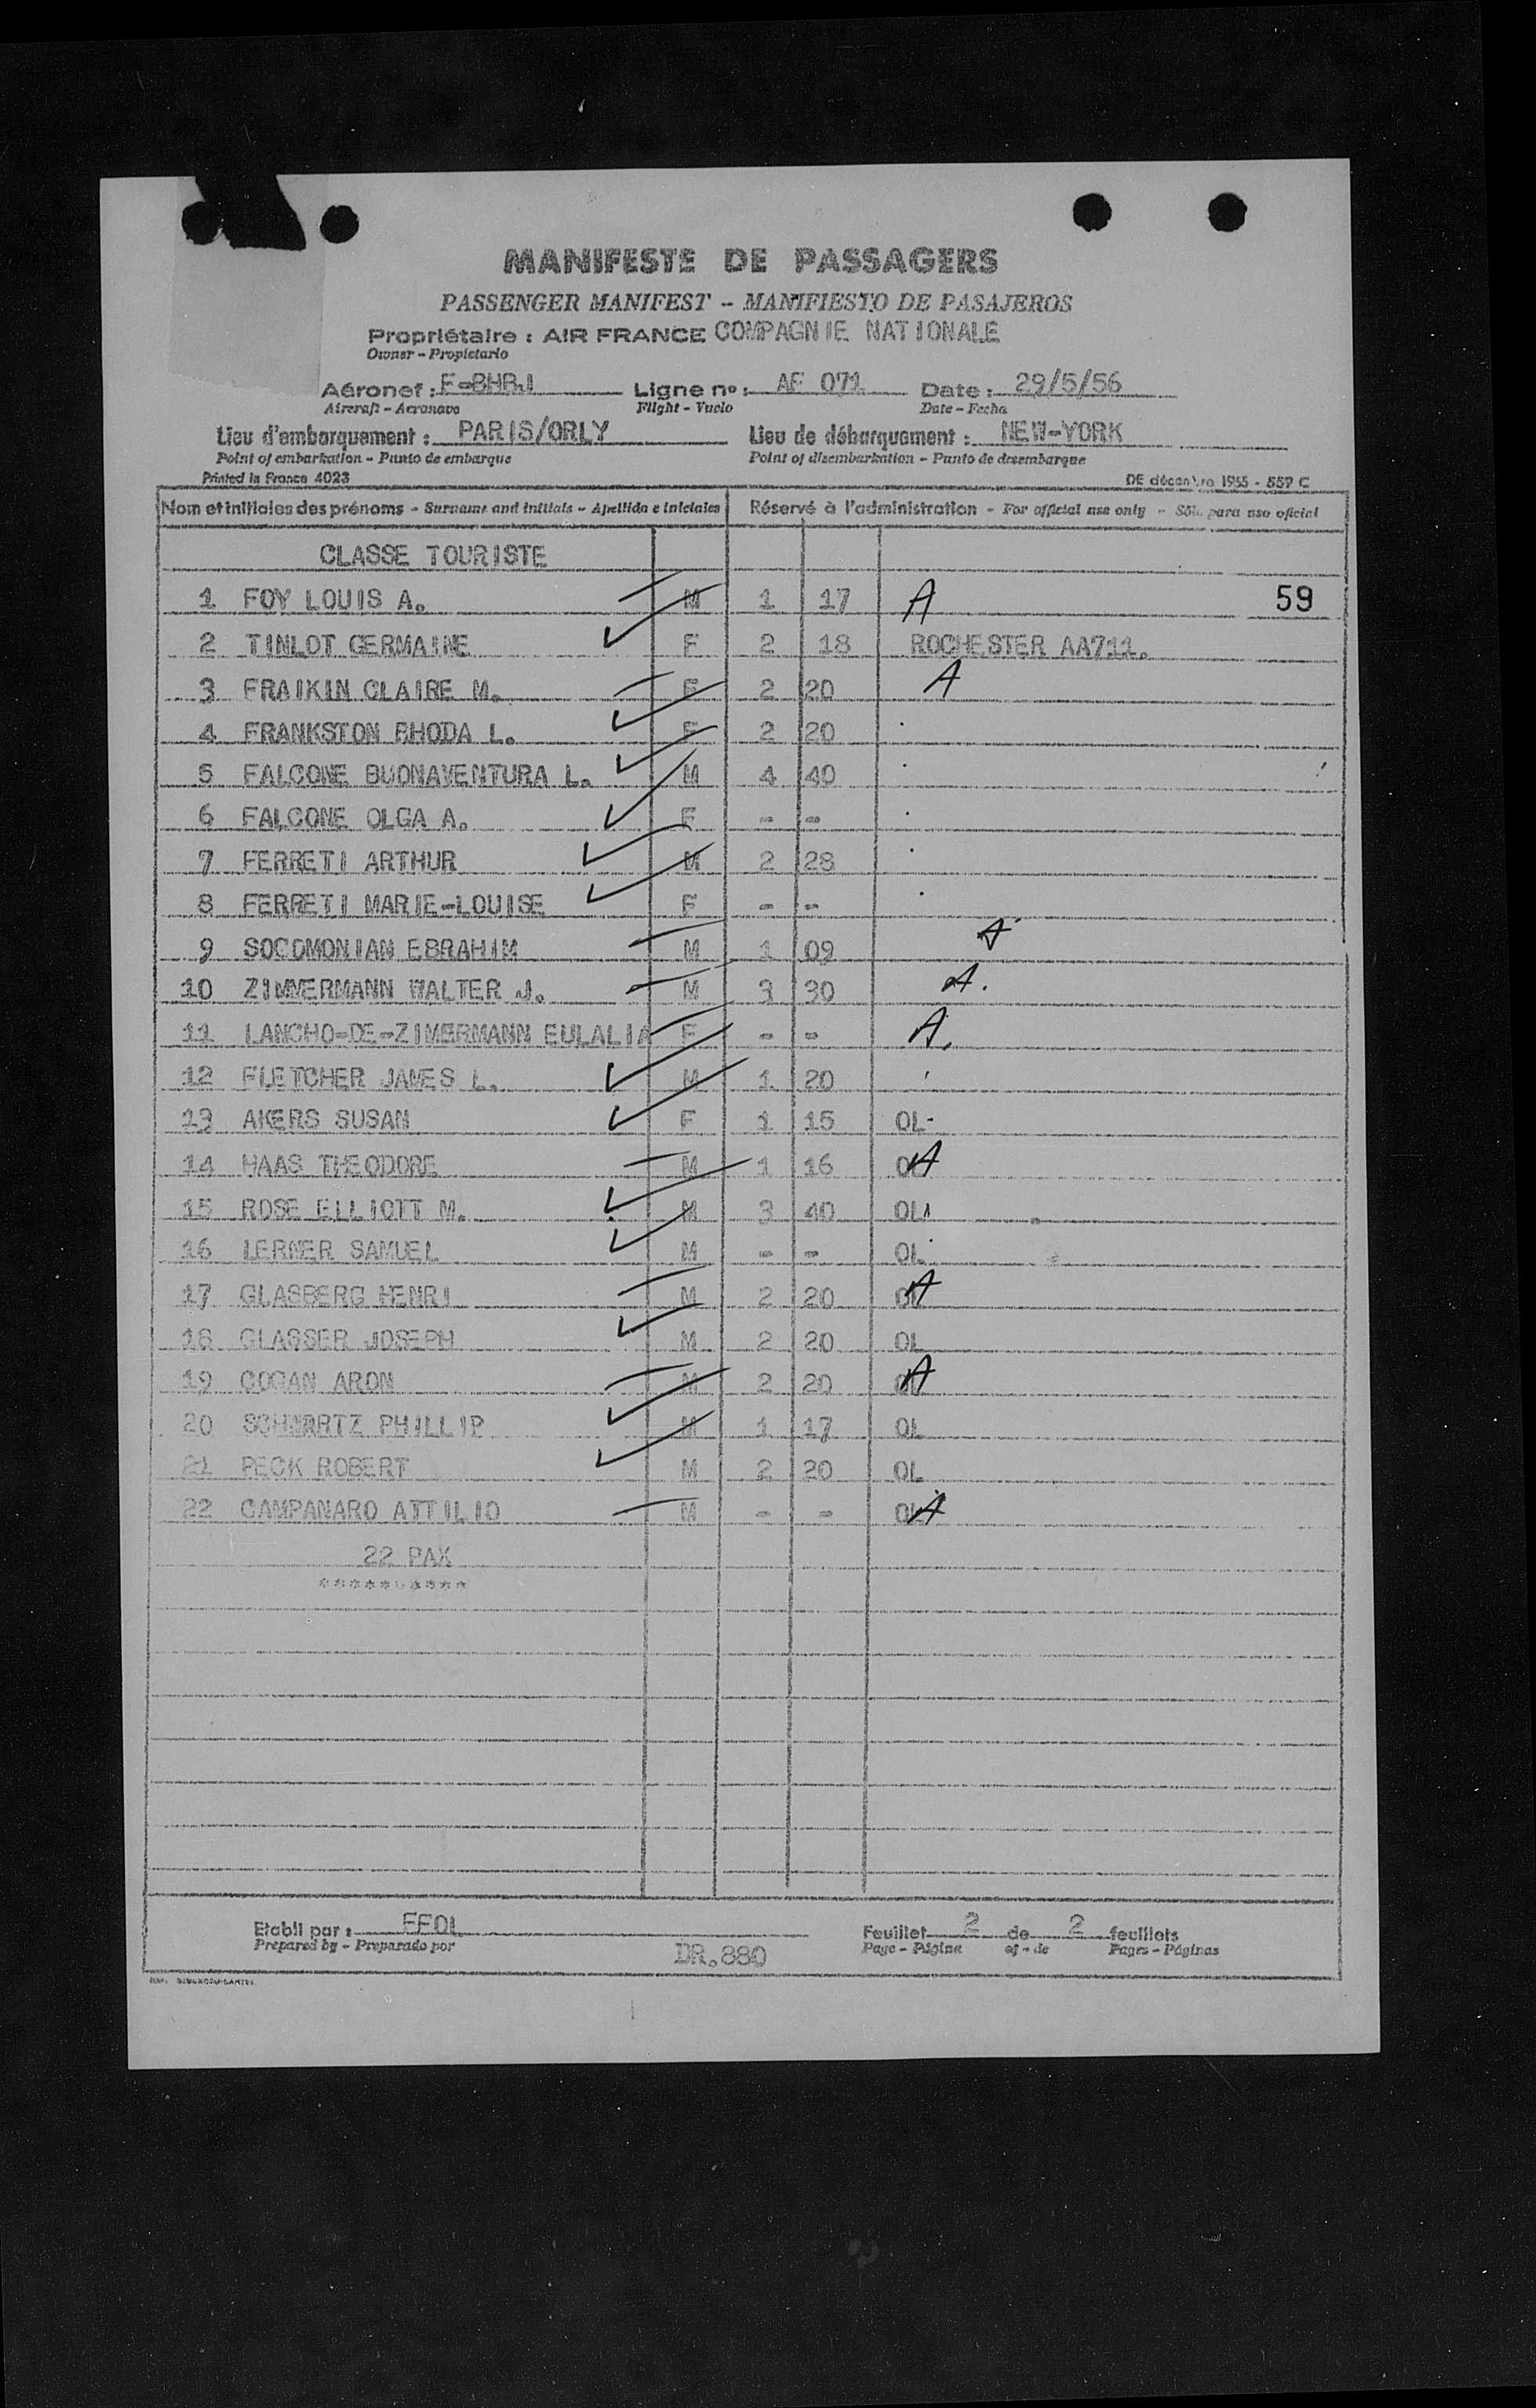 MANIFESTE DE PASSAGERS
PASSENGER MANIFEST - MANIFIESTO DE PASAJEROS
Propriétaire : AIR FRANCE COMPAGNIE NATIONALE
Owner - Propietario
Aéronef : F-BHBJ Ligne nº : AF 071 Date : 29/5/56
Aircraft - Aeronave Flight - Vuelo Date - Fecha
Lieu d'embarquement : PARIS/ORLY Lieu de débarquement : NEW-YORK
Point of embarkation - Punto de embarque Point of disembarkation - Punto de desembarque
Printed in France 4023 DE décembre 1955 - 557 C
Nom et initiales des prénoms - Surname and initials - Apellido e iniciales Réservé à l'administration - For official use only - Sólo para uso oficial
CLASSE TOURISTE
1 FOY LOUIS A. M 1 17 A 59
2 TINLOT GERMAINE F 2 18 ROCHESTER AA711.
3 FRAIKIN CLAIRE M. F 2 20 A
4 FRANKSTON RHODA L. F 2 20
5 FALCONE BUONAVENTURA L. M 4 40
6 FALCONE OLGA A. F - -
7 FERRETI ARTHUR M 2 28
8 FERRETI MARIE-LOUISE F - -
9 SOCOMONIAN EBRAHIM M 1 09 A
10 ZIMMERMANN WALTER J. M 3 30 A.
11 LANCHO-DE-ZIMERMANN EULALIA F - - A.
12 FLETCHER JAMES L. M 1 20
13 AKERS SUSAN F 1 15 OL
14 HAAS THEODORE M 1 16 OL A
15 ROSE ELLIOTT M. M 3 40 OL
16 LERNER SAMUEL M - - OL
17 GLASBERG HENRI M 2 20 OL A
18 GLASSER JOSEPH M 2 20 OL
19 COGAN ARON M 2 20 OL A
20 SCHWARTZ PHILLIP M 1 17 OL
21 PECK ROBERT M 2 20 OL
22 CAMPANARO ATTILIO M - - OL A
22 PAX
**********
Etabli par : FFOL Feuillet 2 de 2 feuillets
Prepared by - Preparado por Page - Página of - de Pages - Páginas
DR.880